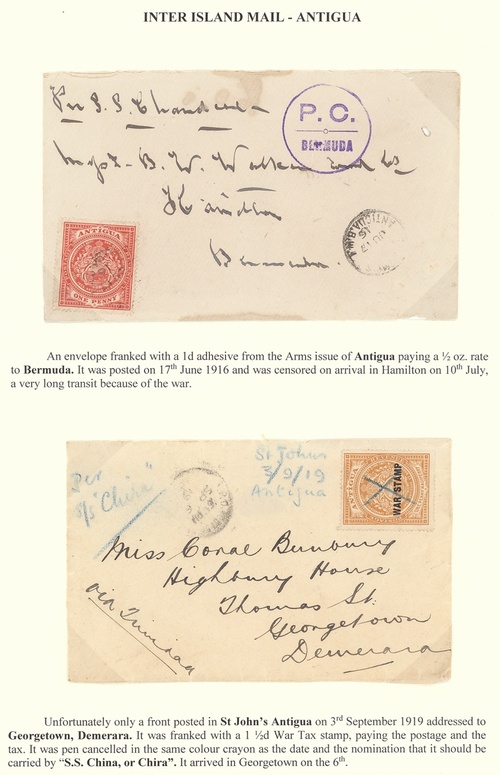 INTER ISLAND MAIL - ANTIGUA
Per S.S. Chaudiere
P. C.
BERMUDA
Messrs B. W. Walker and Co
Hamilton
Bermuda
ANTIGUA
ONE PENNY
ANTIGUA.B.W.I.
An envelope franked with a 1d adhesive from the Arms issue of Antigua paying a ½ oz. rate
to Bermuda. It was posted on 17th June 1916 and was censored on arrival in Hamilton on 10th July,
a very long transit because of the war.
Per
s/s "China"
St Johns
3/9/19
Antigua
WAR STAMP
Miss Coral Bunbury
Highbury House
Thomas St.
Georgetown
Demerara
via Trinidad
Unfortunately only a front posted in St John's Antigua on 3rd September 1919 addressed to
Georgetown, Demerara. It was franked with a 1 ½d War Tax stamp, paying the postage and the
tax. It was pen cancelled in the same colour crayon as the date and the nomination that it should be
carried by "S.S. China, or Chira". It arrived in Georgetown on the 6th.